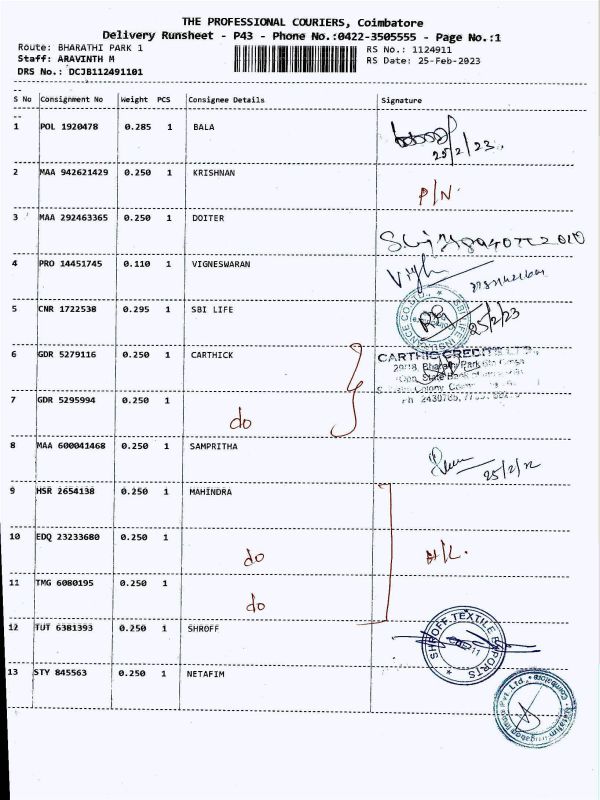 THE PROFESSIONAL COURIERS, Coimbatore
Delivery Runsheet - P43 - Phone No.:0422-3505555 - Page No.:1
Route: BHARATHI PARK 1 RS No.: 1124911
Staff: ARAVINTH M RS Date: 25-Feb-2023
DRS No.: DCJB112491101
S No Consignment No Weight PCS Consignee Details Signature
1 POL 1920478 0.285 1 BALA
25/2/23.
2 MAA 942621429 0.250 1 KRISHNAN
P/N.
3 MAA 292463365 0.250 1 DOITER
4 PRO 14451745 0.110 1 VIGNESWARAN
5 CNR 1722538 0.295 1 SBI LIFE
25/2/23
6 GDR 5279116 0.250 1 CARTHICK
CARTHIC CREDITS
7 GDR 5295994 0.250 1
do
8 MAA 600041468 0.250 1 SAMPRITHA
9 HSR 2654138 0.250 1 MAHINDRA
10 EDQ 23233680 0.250 1
do
11 TMG 6080195 0.250 1
do
12 TUT 6381393 0.250 1 SHROFF
SHROFF TEXTILE EXPORTS
13 STY 845563 0.250 1 NETAFIM